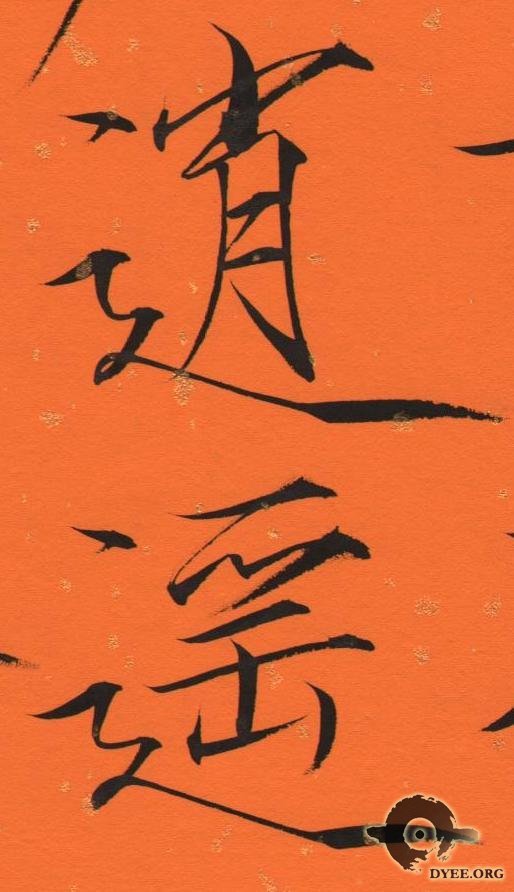 逍
遥
DYEE.ORG